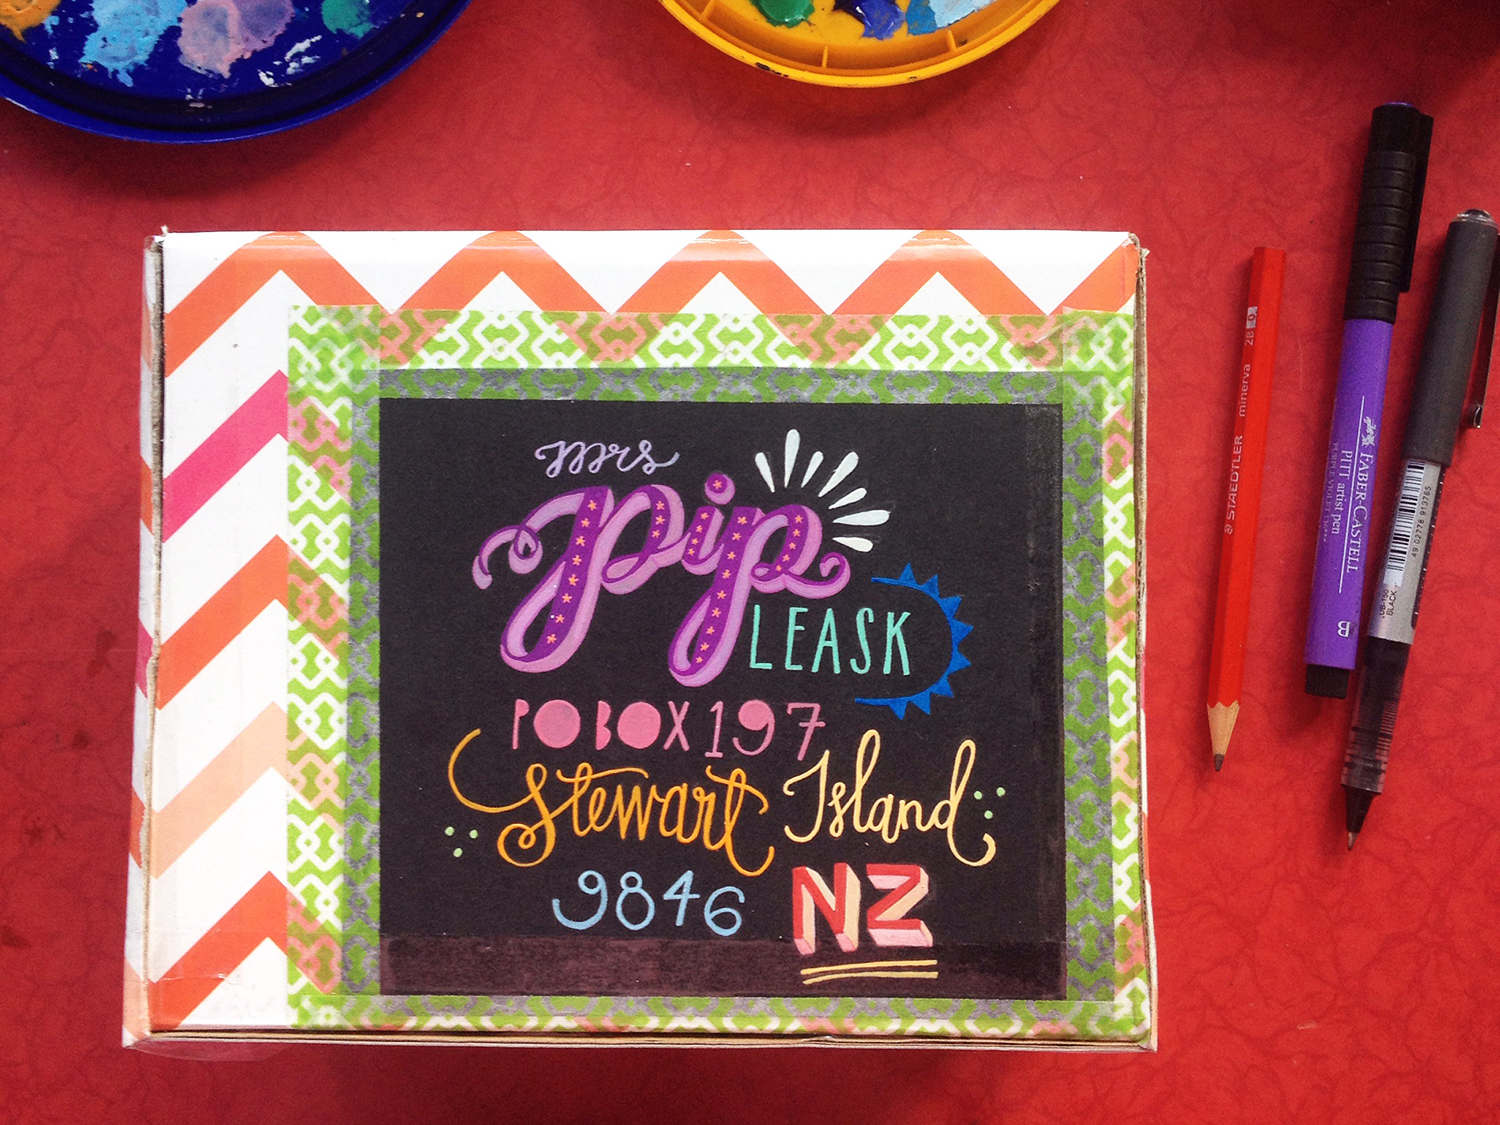 mrs
pip
LEASK
PO BOX 197
Stewart Island
9846 NZ
STAEDTLER minerva 2B
FABER-CASTELL
PITT artist pen
B
UB-150
BLACK
49 02778 913765